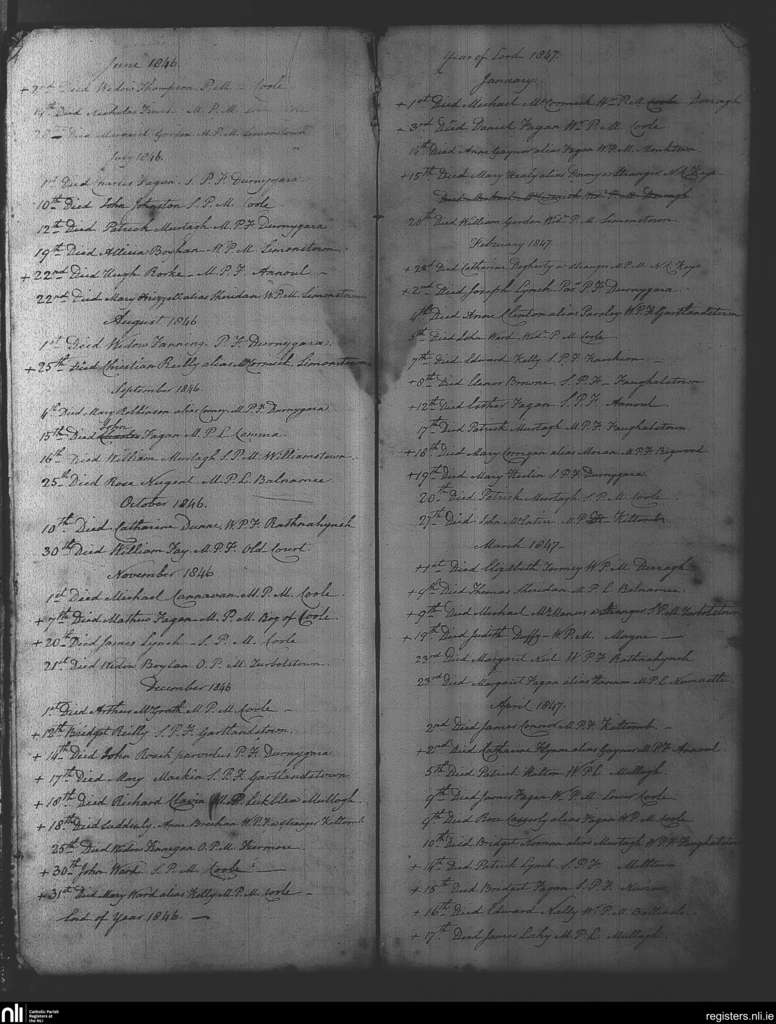 June 1846.
+ 2nd Died Widow Thompson P.M. Coole
14th Died Nicholas M. P. M.
28th Died Margaret Gordon M.P.M. Simonstown
July 1846.
1st Died Charles Fagan S. P. F. Durnygara
10th Died John Johnston S. P. M. Coole
12th Died Patrick Murtagh M. P. F Durnygara
19th Died Allicia M.P.M. Simonstown
+ 22nd Died Hugh Rorke M. P. F. Annoul
22nd Died Mary alias Sheridan W.P.M. Simonstown
August 1846
1st Died Widow Fanning P. F. Durnygara
+ 25th Died Christian Reilly alias McCormick Simonstown
September 1846.
4th Died Mary Robbinson alias M. P. F. Durnygara
John
15th Died Charles Fagan M. P. L. Camma
16th Died William Murtagh S. P. M. Williamstown
25th Died Rose Nugent M. P. L. Balnamee
October 1846.
10th Died Catharine Dunne W. P. F. Rathnahynch
30th Died William Fay M. P. F. Old Court
November 1846
1st Died Michael Cannavan M. P. M. Coole
+ 7th Died Mathew Fagan M. P. M. Bog of Coole
+ 20th Died James Lynch S. P. M. Coole
21st Died Widow Boylan O. P. M. Turbotstown
December 1846
1st Died Arthur McGrath M. P. M. Coole
+ 12th Bridget Reilly S. P. F. Gartlandstown
+ 14th Died John parvulus P. F. Durnygara
+ 17th Died Mary Mackin S. P. F. Gartlandstown
+ 18th Died Richard M. P. L. Mullogh
+ 18th Died Suddenly Anne W. P. F a stranger Kiltomb
25th Died Widow Finegan O. P. M.
+ 30th John Ward S. P. M. Coole
+ 31st Died Mary Ward alias Kelly M. P. M. Coole
End of Year 1846
Year of Lord 1847.
January.
+ 1st Died Michael McCormick Wr. P. M. Coole Derragh
+ 3rd Died Daniel Fagan Wr. P. M. Coole
14th Died Anne Gaynor alias Fagan W. P. M. Monktown
+ 15th Died Mary Healy alias a Stranger
Died Michael McCormick P. M. Derragh
20th Died William Gordon Wdr. P. M. Simonstown
February 1847
+ 2nd Died Catharine Dogherty a stranger M. P. M.
+ 2nd Died Joseph Lynch Par. P. F. Durnygara
4th Died Anne Clinton alias Farley W. P. F. Gartlandstown
5th Died John Ward Wdr. P. M. Coole
7th Died Edward Kelly S. P. F.
+ 8th Died Eleanor Browne S. P. F. Faughalstown
+ 12th Died Esther Fagan S. P. F. Annoul
17th Died Patrick Murtagh M. P. F. Faughalstown
+ 18th Died Mary Corrigan alias Moran M. P. F. Bigwood
+ 19th Died Mary S. P. F. Durnygara
20th Died Patrick Murtagh S. P. M. Coole
27th Died John M. P. Kiltomb
March 1847.
+ 1st Died Elizabeth W. P. M. Derragh
+ 4th Died Thomas Sheridan M. P. L. Balnamee
+ 9th Died Michael McManus a Stranger S. P. M. Turbotstown
+ 19th Died Judith Duffy W. P. M. Mayne
23rd Died Margaret W. P. F. Rathnahynch
23rd Died Margaret Fagan alias M. P. L.
April 1847.
2nd Died James M. P. F. Kiltomb
+ 2nd Died Catharine alias Gaynor M. P. F. Annoul
5th Died Patrick W. P. L. Mullogh
9th Died James Fagan W. P. M. Lower Coole
9th Died Rose Casserly alias Fagan W. P. M. Coole
10th Died Bridget Norman alias Murtagh W. P. F. Faughalstown
+ 14th Died Patrick Lynch S. P. F. Milltown
+ 15th Died Bridget Fagan S. P. F.
+ 16th Died Edward Nally Wr. P. M.
+ 17th Died James M. P. L. Mullogh
nli
Catholic Parish
Registers at
the NLI
registers.nli.ie